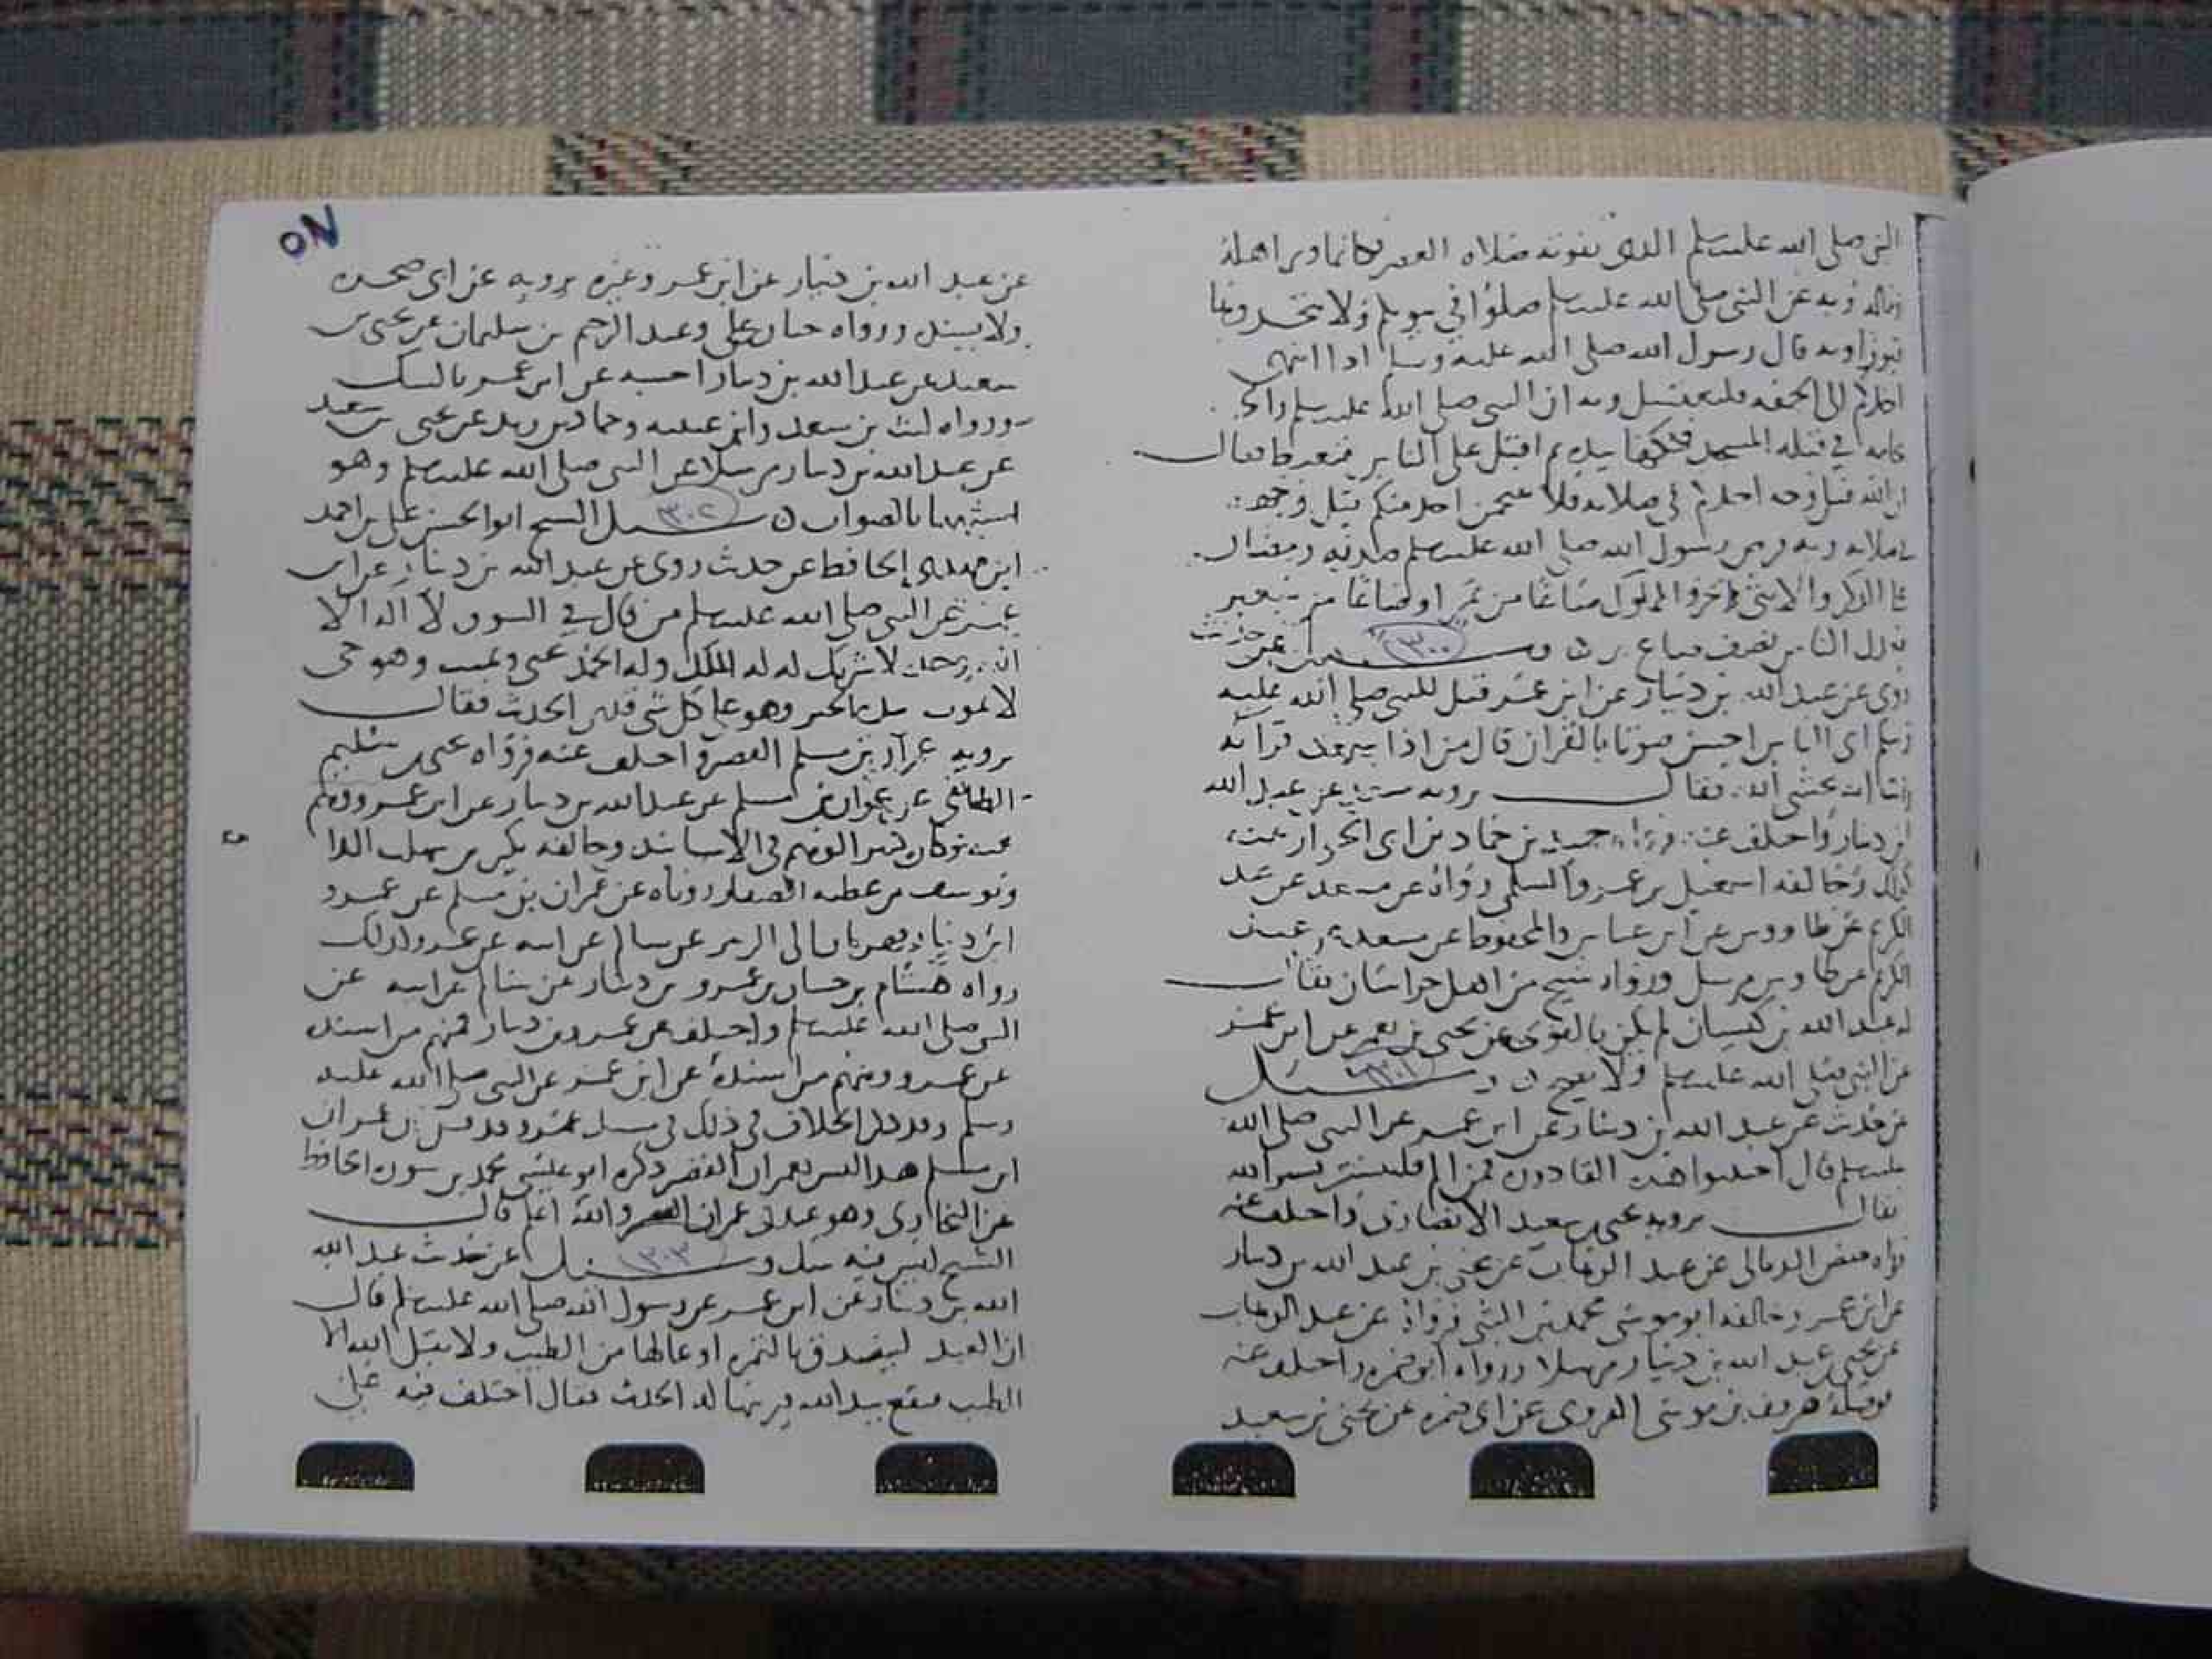 النبي صلى الله عليه وسلم الذي تفوته صلاة العصر كانما وتر اهله
وماله وبه عن النبي صلى الله عليه وسلم صلوا في بيوتكم ولا تتخذوها
قبورا وبه قال رسول الله صلى الله عليه وسلم اذا انتهى
احدكم الى الجمعه فليغتسل وبه ان النبي صلى الله عليه وسلم راى
نخامه في قبله المسجد فحكها بيده ثم اقبل على الناس فتغيظ فقال
ان الله قبل وجه احدكم في صلاته فلا يتنخمن احد منكم قبل وجهه
في صلاته وبه فرض رسول الله صلى الله عليه وسلم صدقه رمضان
على الذكر والانثى والحر والمملوك صاعا من تمر او صاعا من شعير
فعدل الناس نصف صاع بر ن وسئل عن حديث
٣٠٠
روى عن عبد الله بن دينار عن ابن عمر قيل للنبي صلى الله عليه
وسلم اي الناس احسن صوتا بالقران قال من اذا سمعت قراته
رايت انه يخشى الله فقال يرويه مسعر عن عبد الله
بن دينار واختلف عنه فرواه حميد بن حماد بن ابي الخوار عنه
كذلك وخالفه اسمعيل بن عمرو البجلي رواه عن مسعر عن عبد
الكريم عن طاووس عن ابن عباس والمحفوظ عن مسعر عن عبد
الكريم عن طاوس مرسل ورواه شيخ من اهل خراسان يقال
له عبد الله بن كيسان لم يكن بالقوي عن يحيى بن يعمر عن ابن عمر
عن النبي صلى الله عليه وسلم ولا يصح ن وسئل
٣٠١
عن حديث عبد الله بن دينار عن ابن عمر عن النبي صلى الله
عليه وسلم قال اجتنبوا هذه القاذوره فمن الم فليستتر بستر الله
فقال يرويه يحيى بن سعيد الانصاري واختلف عنه
فرواه حفص الربالي عن عبد الوهاب عن يحيى بن عبد الله بن دينار
عن ابن عمر وخالفه ابو موسى محمد بن المثنى فرواه عن عبد الوهاب
عن يحيى عن عبد الله بن دينار مرسلا ورواه ابو ضمره واختلف عنه
فوصله هرون بن موسى الفروي عن ابي ضمره عن يحيى بن سعيد
٥٧
عن عبد الله بن دينار عن ابن عمر وغيره يرويه عن ابي ضمره
ولا يسنده ورواه حبان بن علي وعبد الرحيم بن سليمان عن يحيى بن
سعيد عن عبد الله بن دينار احسبه عن ابن عمر بالشك
ورواه ليث بن سعد وابن عيينه وحماد بن زيد عن يحيى بن سعيد
عن عبد الله بن دينار مرسلا عن النبي صلى الله عليه وسلم وهو
اشبهها بالصواب ن سئل الشيخ ابو الحسن علي بن احمد
٣٠٢
ابن مهدي الحافظ عن حديث روي عن عبد الله بن دينار عن ابن
عمر عن النبي صلى الله عليه وسلم من قال في السوق لا اله الا
الله وحده لا شريك له له الملك وله الحمد يحيي ويميت وهو حي
لا يموت بيده الخير وهو على كل شي قدير الحديث فقال
يرويه عمران بن مسلم القصير واختلف عنه فرواه يحيى بن سليم
الطائفي عن عمران بن مسلم عن عبد الله بن دينار عن ابن عمر ووهم
وكان كثير الوهم في الاسانيد وخالفه بكير بن شهاب
ويوسف بن عطيه الصفار روياه عن عمران بن مسلم عن عمرو
ابن دينار قهرمان ال الزبير عن سالم عن ابيه عن عمر وكذلك
رواه هشام بن حسان عن عمرو بن دينار عن سالم عن ابيه عن
النبي صلى الله عليه وسلم واختلف عن عمرو بن دينار فمنهم من اسنده
عن عمر ومنهم من اسنده عن ابن عمر عن النبي صلى الله عليه
وسلم وقد ذكر الخلاف في ذلك في مسند عمر وقد قيل ان عمران
ابن مسلم هذا ليس بعمران القصير ذكره ابو عيسى محمد بن سوره الحافظ
عن البخاري وهو عندي عمران القصير والله اعلم قال
الشيخ ليس فيه شك وسئل عن حديث عبد الله
٣٠٣
الله بن دينار عن ابن عمر عن رسول الله صلى الله عليه وسلم قال
ان العبد ليصدق بالتمره او عدلها من الطيب ولا يقبل الله الا
الطيب فتقع بيد الله فيربيها له الحديث فقال اختلف فيه على